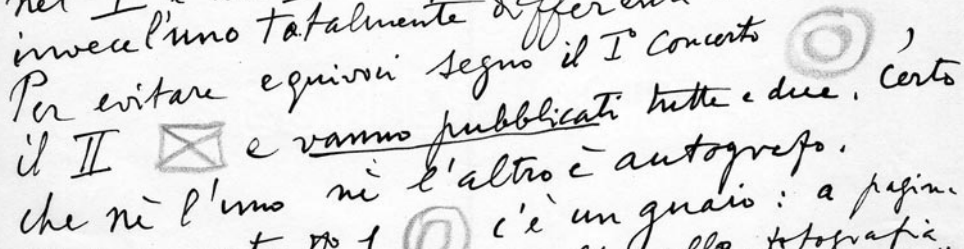 nel I
invece l'uno totalmente differen
Per evitare equivoci segno il I° Concerto
il II e vanno pubblicati tutte e due. Certo
che nè l'uno nè l'altro è autografo.
c'è un guaio: a pagina
fotografia